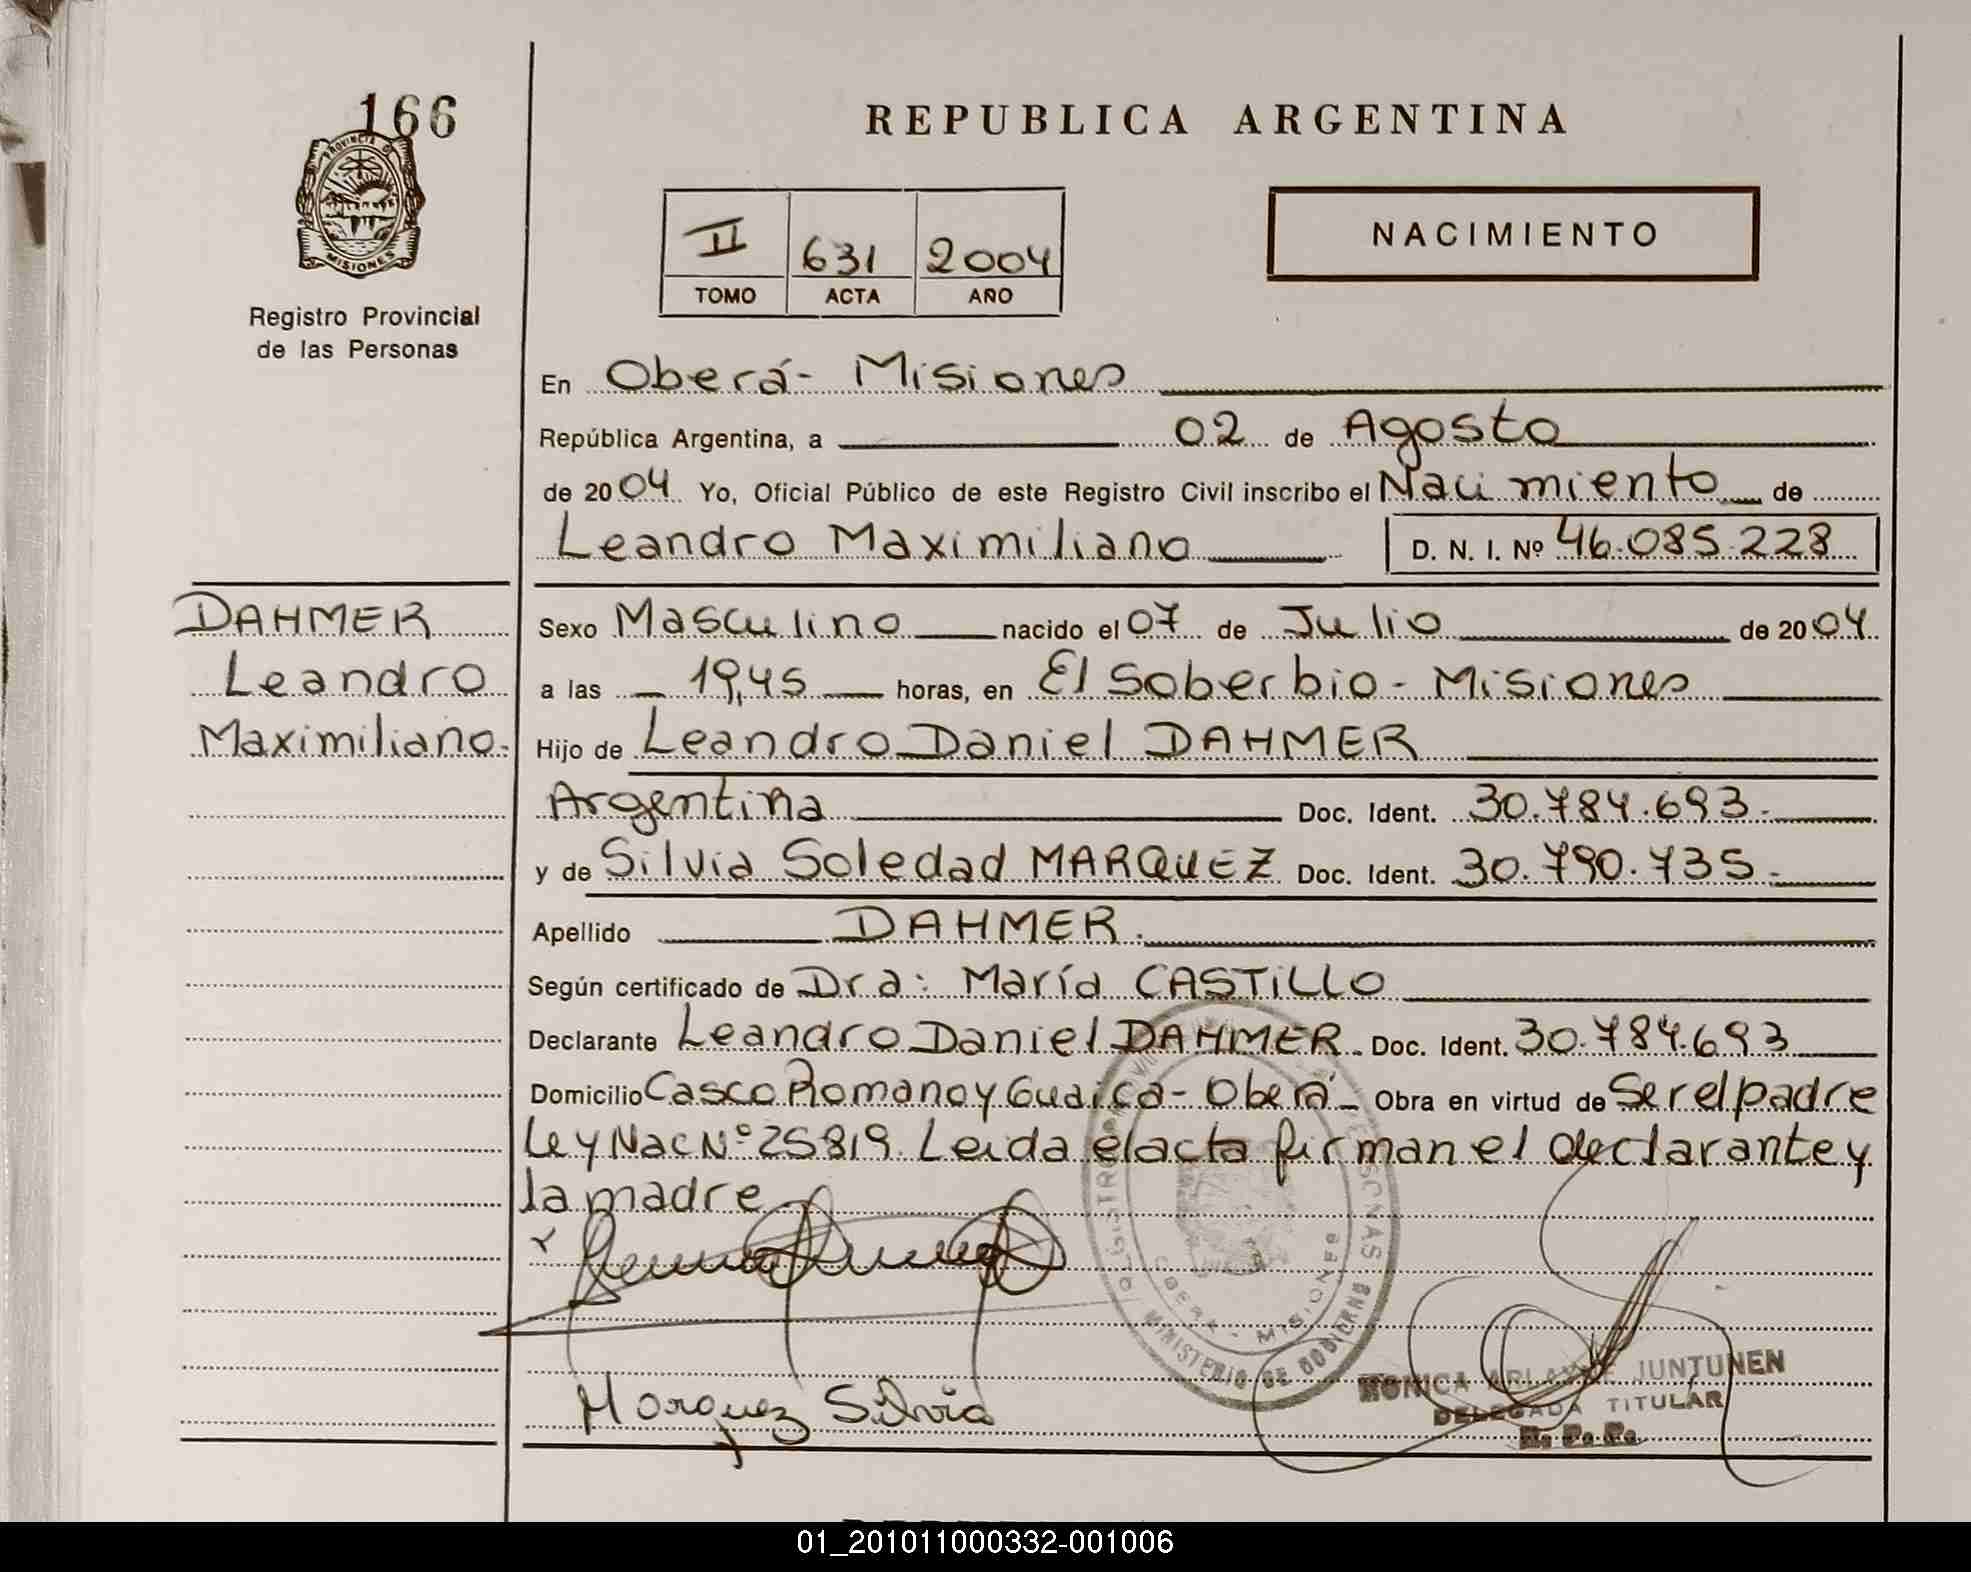 166
REPUBLICA ARGENTINA
PROVINCIA D
MISIONES
Registro Provincial
de las Personas
II 631 2004
TOMO ACTA AÑO
NACIMIENTO
En Oberá - Misiones
República Argentina, a 02 de Agosto
de 2004 Yo, Oficial Público de este Registro Civil inscribo el Nacimiento de
Leandro Maximiliano D. N. I. Nº 46.085.228
DAHMER
Leandro
Maximiliano.
Sexo Masculino nacido el 07 de Julio de 2004.
a las 19,45 horas, en El Soberbio - Misiones
Hijo de Leandro Daniel DAHMER
Argentina Doc. Ident. 30.784.693.-
y de Silvia Soledad MARQUEZ Doc. Ident. 30.790.735.-
Apellido DAHMER.
Según certificado de Dra: María CASTiLLO
Declarante Leandro Daniel DAHMER. Doc. Ident. 30.784.693
Domicilio Casco Romano y Guaica - Oberá - Obra en virtud de Ser el padre
Ley Nac Nº 25819. Leida el acta firman el declarante y
la madre
MINISTERIO DE GOBIERNO
OBERA - MISIONES
Marquez Silvia
MONICA JUNTUNEN
DELEGADA TITULAR
R. P. P.
01_201011000332-001006